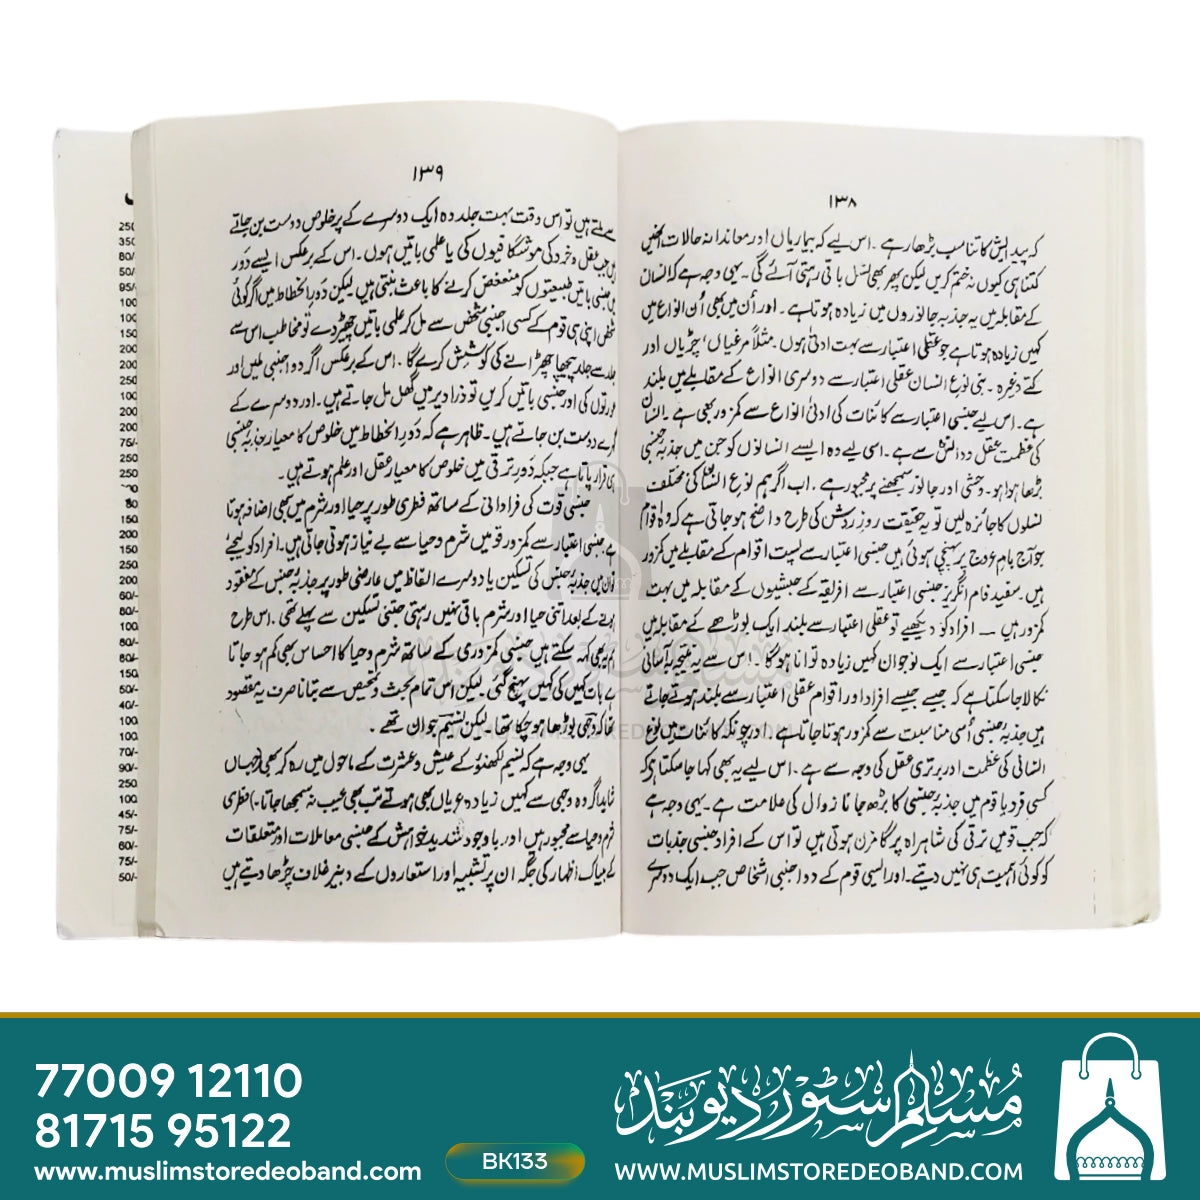 ۱۳۸
کہ پیدایش کا تناسب بڑھا رہے ۔ اس لیے کہ بیماریاں اور معاندانہ حالات انھیں
کتنا ہی کیوں نہ ختم کریں لیکن پھر بھی نسل باقی رہتی آئے گی ۔ یہی وجہ ہے کہ انسان
کے مقابلہ میں یہ جذبہ جانوروں میں زیادہ ہوتا ہے ۔ اور اُن میں بھی اُن انواع میں
کہیں زیادہ ہوتا ہے جو عقلی اعتبار سے بہت ادنیٰ ہوں ۔ مثلاً مرغیاں ، چڑیاں اور
کتے وغیرہ ۔ بنی نوع انسان عقلی اعتبار سے دوسری انواع کے مقابلے میں بلند
ہے ۔ اس لیے جنسی اعتبار سے کائنات کی ادنیٰ انواع سے کمزور بھی ہے ۔ انسان
کی عظمت عقل و دانش سے ہے ۔ اسی لیے وہ ایسے انسانوں کو جن میں جذبۂ جنسی
بڑھا ہوا ہو ۔ وحشی اور جانور سمجھنے پر مجبور ہے ۔ اب اگر ہم نوع انسانی کی مختلف
نسلوں کا جائزہ لیں تو یہ حقیقت روزِ روشن کی طرح واضح ہو جاتی ہے کہ وہ اقوام
جو آج بامِ عروج پر پہنچی ہوئی ہیں جنسی اعتبار سے پست اقوام کے مقابلے میں کمزور
ہیں ۔ سفید فام انگریز جنسی اعتبار سے افریقہ کے حبشیوں کے مقابلہ میں بہت
کمزور ہیں — افراد کو دیکھیے تو عقلی اعتبار سے بلند ایک بوڑھے کے مقابلہ میں
جنسی اعتبار سے ایک نوجوان کہیں زیادہ توانا ہوگا ۔ اس سے یہ نتیجہ بآسانی
نکالا جا سکتا ہے کہ جیسے جیسے افراد اور اقوام عقلی اعتبار سے بلند ہوتے جاتے
ہیں جذبۂ جنسی اُسی مناسبت سے کمزور ہوتا جاتا ہے ۔ اور چونکہ کائنات میں نوع
انسانی کی عظمت اور برتری عقل کی وجہ سے ہے ۔ اس لیے یہ بھی کہا جا سکتا ہے کہ
کسی فرد یا قوم میں جذبۂ جنسی کا بڑھ جانا زوال کی علامت ہے ۔ یہی وجہ ہے
کہ جب قومیں ترقی کی شاہراہ پر گامزن ہوتی ہیں تو اس کے افراد جنسی جذبات
کو کوئی اہمیت ہی نہیں دیتے ۔ اور ایسی قوم کے دو اجنبی اشخاص جب ایک دوسرے
۱۳۹
سے ملتے ہیں تو اس وقت بہت جلد وہ ایک دوسرے کے پرخلوص دوست بن جاتے
جب عقل و خرد کی موشگافیوں کی یا علمی باتیں ہوں ۔ اس کے برعکس ایسے دَور
جنسی باتیں طبیعتوں کو منغض کرنے کا باعث بنتی ہیں لیکن دَورِ انحطاط میں اگر کوئی
اپنی ہی قوم کے کسی اجنبی شخص سے مل کر علمی باتیں چھیڑ دے تو مخاطب اس سے
جلد سے جلد پیچھا چھڑانے کی کوشش کرے گا ۔ اس کے برعکس اگر دو اجنبی ملیں اور
عورتوں کی اور جنسی باتیں کریں تو ذرا دیر میں گھل مل جاتے ہیں ۔ اور دوسرے کے
گہرے دوست بن جاتے ہیں ۔ ظاہر ہے کہ دَورِ انحطاط میں خلوص کا معیار جذبۂ جنسی
ہی قرار پاتا ہے جبکہ دَورِ ترقی میں خلوص کا معیار عقل اور علم ہوتے ہیں ۔
جنسی قوت کی فراوانی کے ساتھ فطری طور پر حیا اور شرم میں بھی اضافہ ہوتا
ہے جنسی اعتبار سے کمزور قومیں شرم و حیا سے بے نیاز ہوتی جاتی ہیں ۔ افراد کو لیجیے
اُن میں جذبۂ جنس کی تسکین یا دوسرے الفاظ میں عارضی طور پر جذبۂ جنس کے مفقود
ہونے کے بعد اتنی حیا اور شرم باقی نہیں رہتی جتنی تسکین سے پہلے تھی ۔ اس طرح
ہم یہ بھی کہہ سکتے ہیں جنسی کمزوری کے ساتھ شرم و حیا کا احساس بھی کم ہو جاتا
ہے بات کہیں کی کہیں پہنچ گئی ۔ لیکن اس تمام بحث و تمحیص سے بتانا صرف یہ مقصود
تھا کہ وجہی بوڑھا ہو چکا تھا ۔ لیکن نسیم جوان تھے ۔
یہی وجہ ہے کہ نسیم لکھنؤ کے عیش و عشرت کے ماحول میں رہ کر بھی (جہاں
شاید اگر وہ وجہی سے کہیں زیادہ عریاں بھی ہوتے تب بھی عیب نہ سمجھا جاتا ۔) فطری
شرم و حیا سے مجبور ہیں اور باوجود شدید خواہش کے جنسی معاملات اور متعلقات
کے بیباک اظہار کی جگہ ان پر تشبیہ اور استعاروں کے دبیز غلاف چڑھا دیتے ہیں
250
350
80/-
50/-
95/-
100
100
130
200
200
250
100
200
200
75/-
250
250
80
150
200
150
250
200
60/-
100
80/-
80/-
150
50/-
40/-
100
100
70/-
90/-
250
100
45/-
75/-
60/-
75/-
50/-
مسلم سٹور دیوبند
WWW.MUSLIMSTOREDEOBAND.COM
77009 12110
81715 95122
www.muslimstoredeoband.com
BK133
مسلم سٹور دیوبند
WWW.MUSLIMSTOREDEOBAND.COM